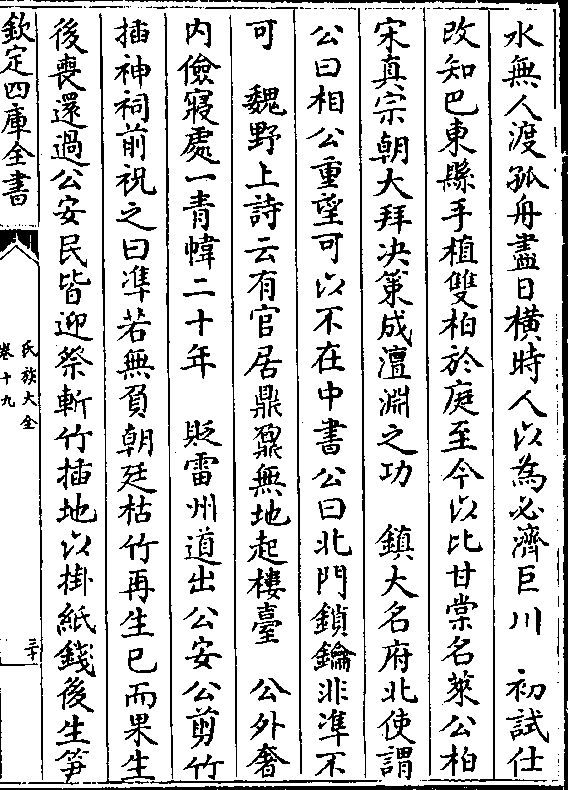 水無人渡孤舟盡日横時人以為必濟巨川　初試仕
改知巴東縣手植雙柏於庭至今以比甘棠名萊公柏
宋真宗朝大拜决策成澶淵之功　鎮大名府北使謂
公曰相公重望可以不在中書公曰北門鎖鑰非凖不
可　魏野上詩云有官居鼎鼐無地起樓臺　公外奢
内儉寢處一青幃二十年　貶雷州道出公安公剪竹
插神祠前祝之曰凖若無負朝廷枯竹再生已而果生
後喪還過公安民皆迎祭斬竹插地以掛紙錢後生笋
欽定四庫全書
氏族大全
卷十九
三十